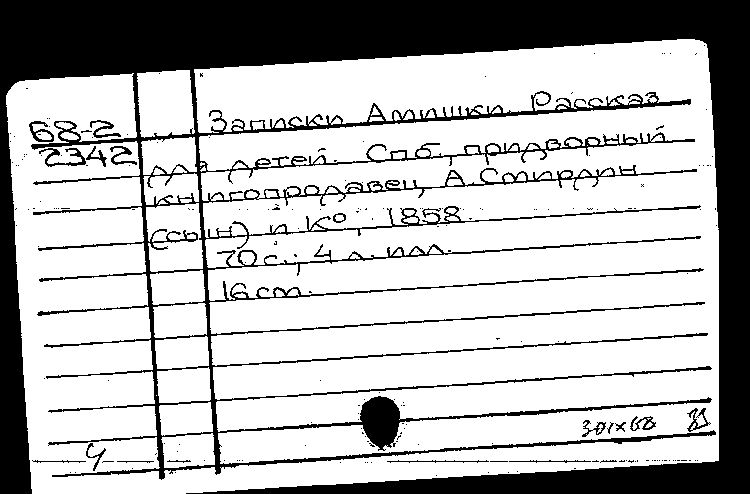 68-2
2342
... Записки Амишки. Рассказ
для детей. Спб., придворный
книгопродавец А. Смирдин
(сын) и К°, 1858.
70 с.; 4 л. илл.
16 cm.
Ч
30/X68